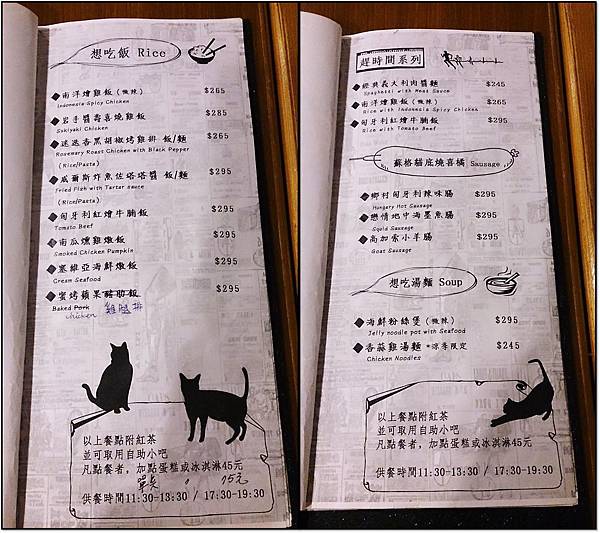 想吃飯 Rice
◆南洋燴雞飯(微辣) $265
Indonesia Spicy Chicken
◆岩手醬壽喜燒雞飯 $285
Sukiyaki Chicken
◆迷迭香黑胡椒烤雞排 飯/麵 $265
Rosemary Roast Chicken with Black Pepper
(Rice/Pasta)
◆威爾斯炸魚佐塔塔醬 飯/麵 $295
Fried Fish with Tartar sauce
(Rice/Pasta)
◆匈牙利紅燴牛腩飯 $295
Tomato Beef
◆南瓜燻雞燉飯 $295
Smoked Chicken Pumpkin
◆塞維亞海鮮燉飯 $295
Cream Seafood
◆蜜烤蘋果豬肋飯 $295
Baked Pork 雞腿排
chicken
以上餐點附紅茶
並可取用自助小吧
凡點餐者,加點蛋糕或冰淇淋45元
單點 75元
供餐時間11:30-13:30 / 17:30-19:30
趕時間系列
◆經典義大利肉醬麵 $245
Spaghetti with Meat Sauce
◆南洋燴雞飯(微辣) $265
Rice with Indonesia Spicy Chicken
◆匈牙利紅燴牛腩飯 $295
Rice with Tomato Beef
蘇格貓底燒喜橘 Sausage
◆鄉村匈牙利辣味腸 $295
Hungary Hot Sausage
◆戀情地中海墨魚腸 $295
Squid Sausage
◆高加索小羊腸 $295
Goat Sausage
想吃湯麵 Soup
◆海鮮粉絲煲(微辣) $295
Jelly noodle pot with Seafood
◆香菇雞湯麵 *涼季限定 $245
Chicken Noodles
以上餐點附紅茶
並可取用自助小吧
凡點餐者,加點蛋糕或冰淇淋45元
供餐時間11:30-13:30 / 17:30-19:30